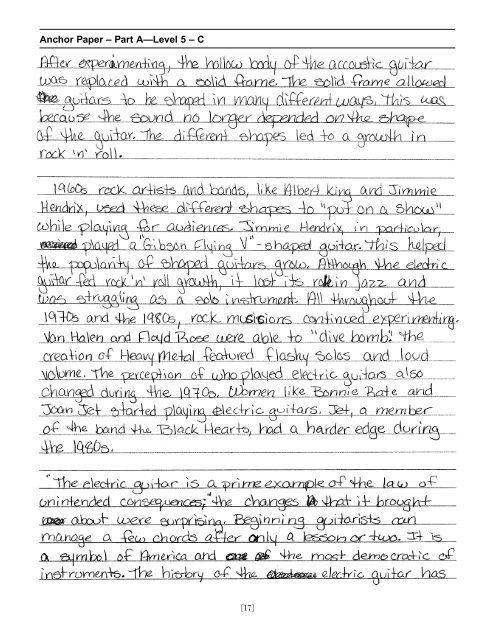 Anchor Paper – Part A—Level 5 – C
After experimenting, the hollow body of the accoustic guitar
was replaced with a solid frame. The solid frame allowed
guitars to be shaped in many different ways. This was
because the sound no longer depended on the shape
of the guitar. The different shapes led to a growth in
rock 'n' roll.
1960s rock artists and bands, like Albert King and Jimmie
Hendrix, used these different shapes to "put on a show"
while playing for audiences. Jimmie Hendrix, in particular,
played a "Gibson Flying V"-shaped guitar. This helped
the popularity of shaped guitars grow. Although the electric
guitar fed rock 'n' roll growth, it lost its role in jazz and
was struggling as a solo instrument. All throughout the
1970s and the 1980s, rock musicians continued experimenting.
Van Halen and Floyd Rose were able to "dive bomb." The
creation of Heavy Metal featured flashy solos and loud
volume. The perception of who played electric guitars also
changed during the 1970s. Women like Bonnie Rate and
Joan Jet started playing electric guitars. Jet, a member
of the band the Black Hearts, had a harder edge during
the 1980s.
"The electric guitar is a prime example of the law of
unintended consequences;" the changes that it brought
about were surprising. Beginning guitarists can
manage a few chords after only a lesson or two. It is
a symbol of America and the most democratic of
instruments. The history of the electric guitar has
[17]